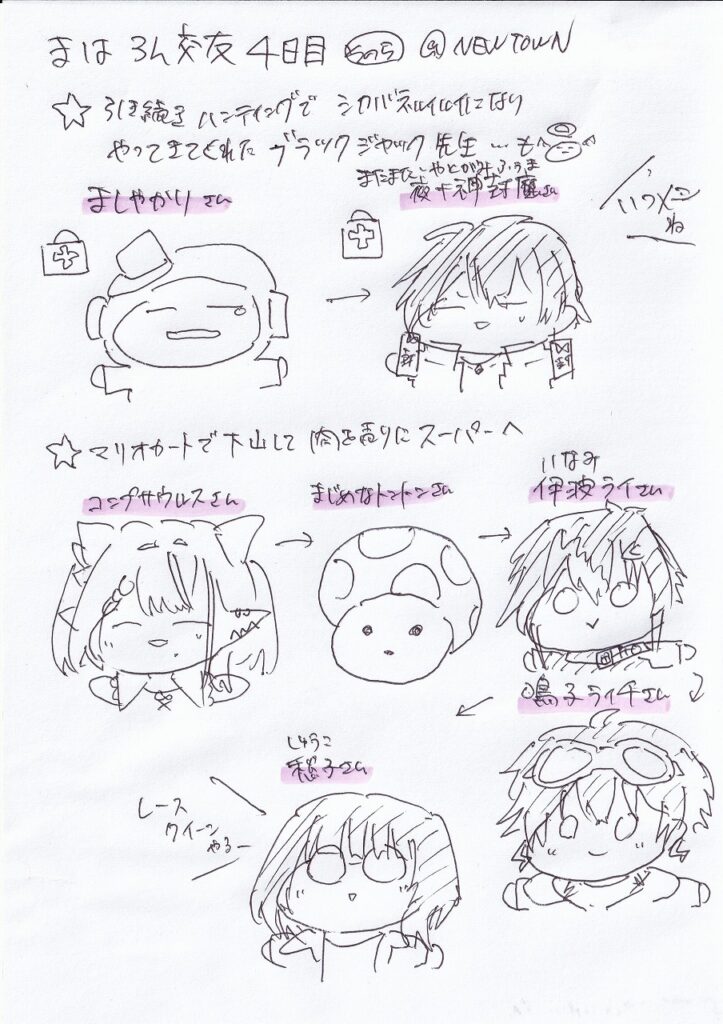 まは ろん 交友 4日目 その5 @ NEW TOWN
☆ 引き続き ハンティングで シカバネWWWになり
やってきてくれた ブラックジャック 先生 … も
またまた やとがみ ふうま
ましゃかりさん
夜十神 封魔さん
ね
☆ マリオカートで 下山して (肉)を売りに スーパーへ
コンプサウルスさん
まじめなトントンさん
いなみ
伊波ライさん
鳴子ライチさん
しゅうこ
愁子さん
レース
クイーン
やろー